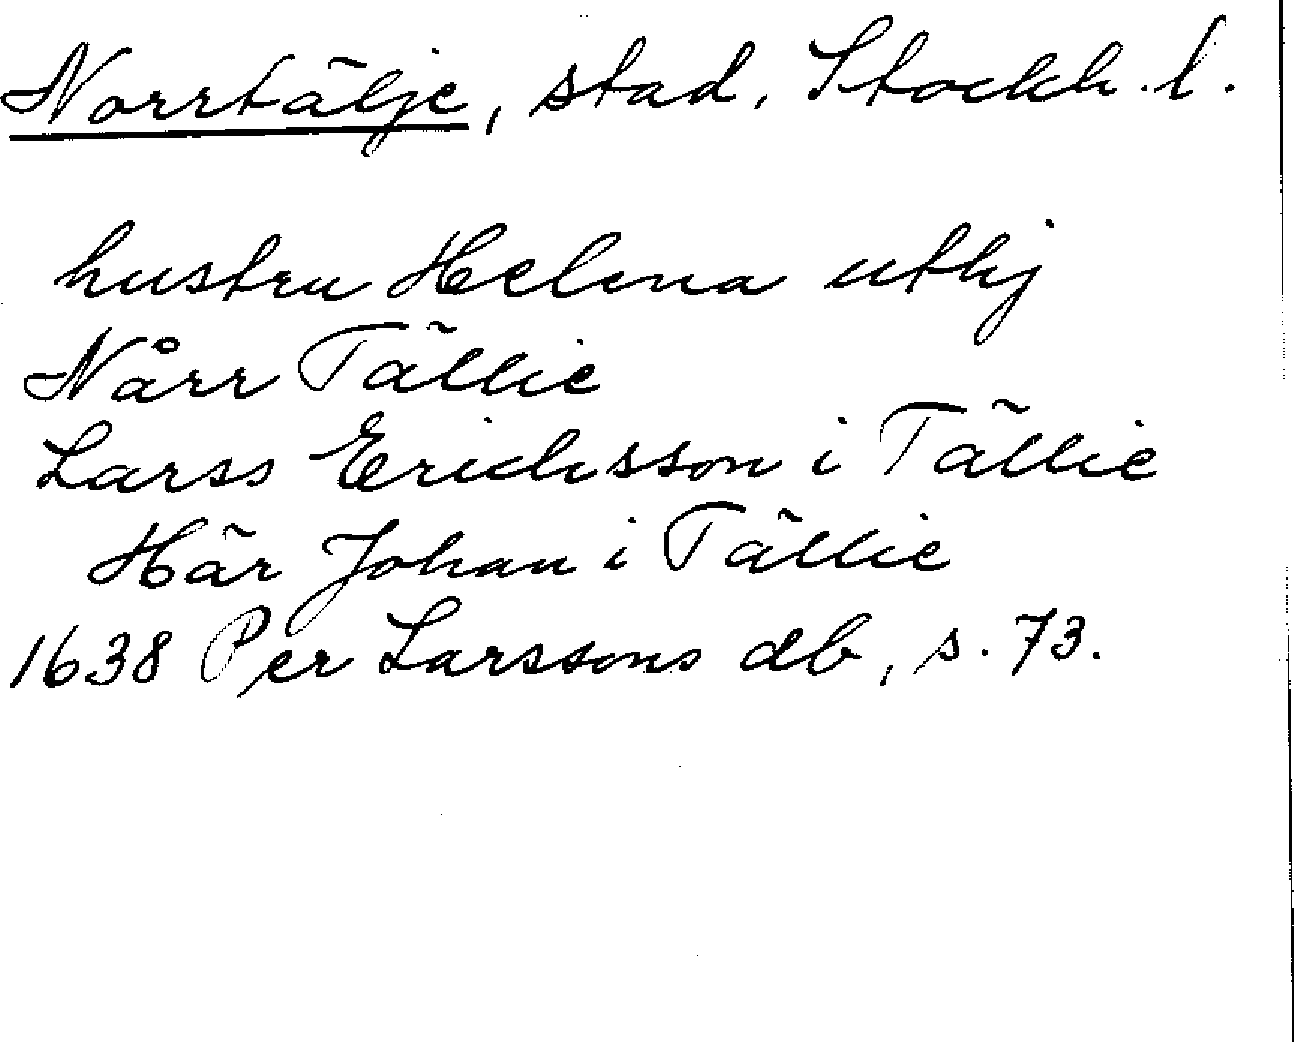 Norrtälje, stad. Stockh. l.
hustru Helena uthj
Nårr Tällie
Larss Erichsson i Tällie
Här Johan i Tällie
1638 Per Larssons db, s. 73.